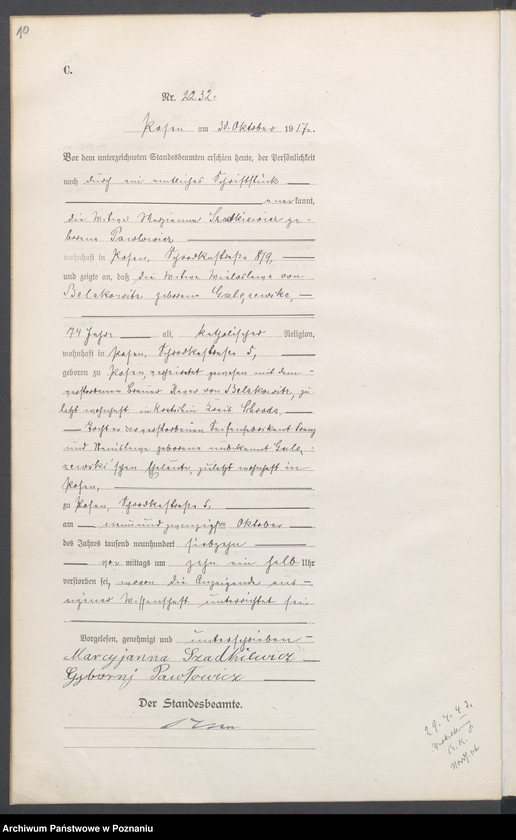 10
C.
Nr. 2232.
Posen am 30. Oktober 1917.
Vor dem unterzeichneten Standesbeamten erschien heute, der Persönlichkeit
nach durch ein amtliches Schriftstück
anerkannt,
die Witwe Marianna Szadkiewicz ge-
borene Pawłowicz
wohnhaft in Posen, Schrodkastraße 8/9,
und zeigte an, daß die Witwe von
Belakowitz geborene
74 Jahre alt, katholischer Religion,
wohnhaft in Posen, Schrodkastraße 5,
geboren zu Posen, verheiratet gewesen mit dem
verstorbenen Brauer von Belakowitz, zu-
letzt wohnhaft in Kreis Schroda,
Tochter der verstorbenen Seifenfabrikant Franz
und geborene unbekannt
zewski'schen Eheleute, zuletzt wohnhaft in
Posen,
zu Posen, Schrodkastraße 5,
am neunundzwanzigsten Oktober
des Jahres tausend neunhundert siebzehn
vormittags um zehn ein halb Uhr
verstorben sei, wovon die Anzeigende aus
eigener Wissenschaft unterrichtet sei.
Vorgelesen, genehmigt und unterschrieben
Marcyjanna Szadkiewicz
Pawłowicz
Der Standesbeamte.
29.4.43.
Archiwum Państwowe w Poznaniu